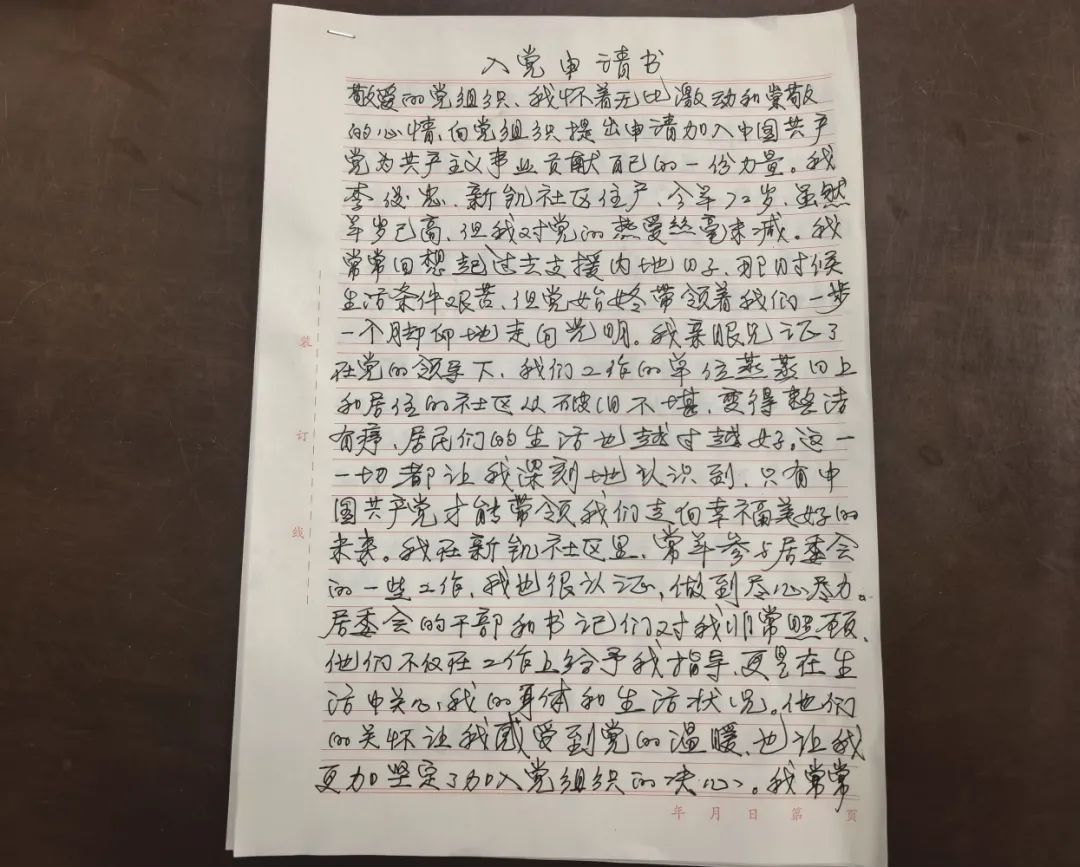 入党申请书
敬爱的党组织、我怀着无比激动和崇敬
的心情,向党组织提出申请加入中国共产
党为共产主义事业贡献自己的一份力量。我
李俊忠、新凯社区住户、今年72岁、虽然
年岁已高、但我对党的热爱丝毫未减。我
常常回想起过去支援内地日子、那时候
生活条件艰苦、但党始终带领着我们一步
一个脚印地走向光明。我亲眼见证了
在党的领导下、我们工作的单位蒸蒸日上
和居住的社区从破旧不堪、变得整洁
有序、居民们的生活也越过越好。这一
一切都让我深刻地认识到、只有中
国共产党才能带领我们走向幸福美好的
未来。我在新凯社区里、常年参与居委会
的一些工作、我也很认证,做到尽心尽力。
居委会的干部和书记们对我非常照顾、
他们不仅在工作上给予我指导、更是在生
活中关心我的身体和生活状况。他们
的关怀让我感受到党的温暖、也让我
更加坚定了加入党组织的决心。我常常
装
订
线
年 月 日 第 页